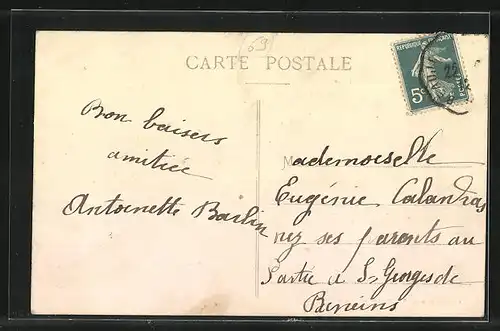 CARTE POSTALE
REPUBLIQUE FRANÇAISE
5c
22
Bon baisers
amitiée
Antoinette Barlin
Mademoiselle
Eugénie Calandras
ses parents au
à St Georges de
Reneins